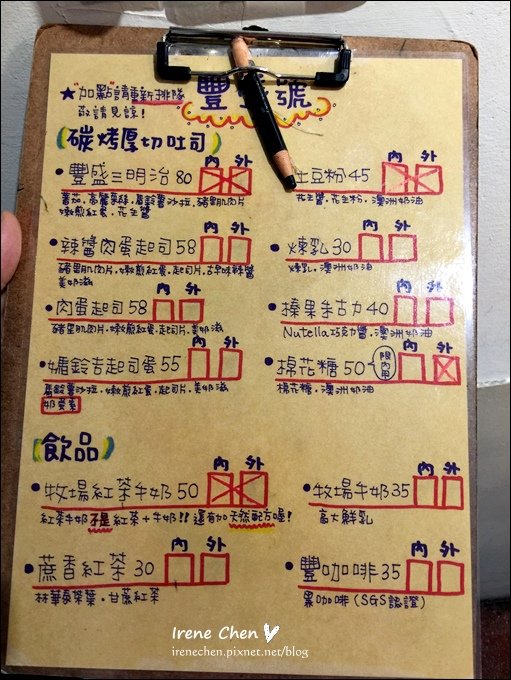 ★"加點"請重新排隊
敬請見諒!
豐盛號
(碳烤厚切吐司)
內 外
• 豐盛三明治 80
蕃茄.高麗菜絲.馬鈴薯沙拉.豬里肌肉片
嫩煎紅蛋.花生醬
內 外
土豆粉 45
花生醬.花生粉.澳洲奶油
內 外
• 辣醬肉蛋起司 58
豬里肌肉片.嫩煎紅蛋.起司片.古早味辣醬
美奶滋
內 外
• 煉乳 30
煉乳.澳洲奶油
• 肉蛋起司 58
豬里肌肉片.嫩煎紅蛋.起司片.美奶滋
• 榛果朱古力 40
Nutella巧克力醬.澳洲奶油
內 外
• 馬鈴吉起司蛋 55
馬鈴薯沙拉.嫩煎紅蛋.起司片.美奶滋
奶蛋素
內 外
• 棉花糖 50 限內用
棉花糖.澳洲奶油
(飲品)
內 外
• 牧場紅茶牛奶 50
紅茶牛奶不是紅茶+牛奶!! 還有加天然配方喔!
內 外
• 牧場牛奶 35
高大鮮乳
內 外
• 蔗香紅茶 30
林華泰茶葉.甘蔗紅茶
內 外
• 豐咖啡 35
黑咖啡(SGS認證)
Irene Chen
irenechen.pixnet.net/blog